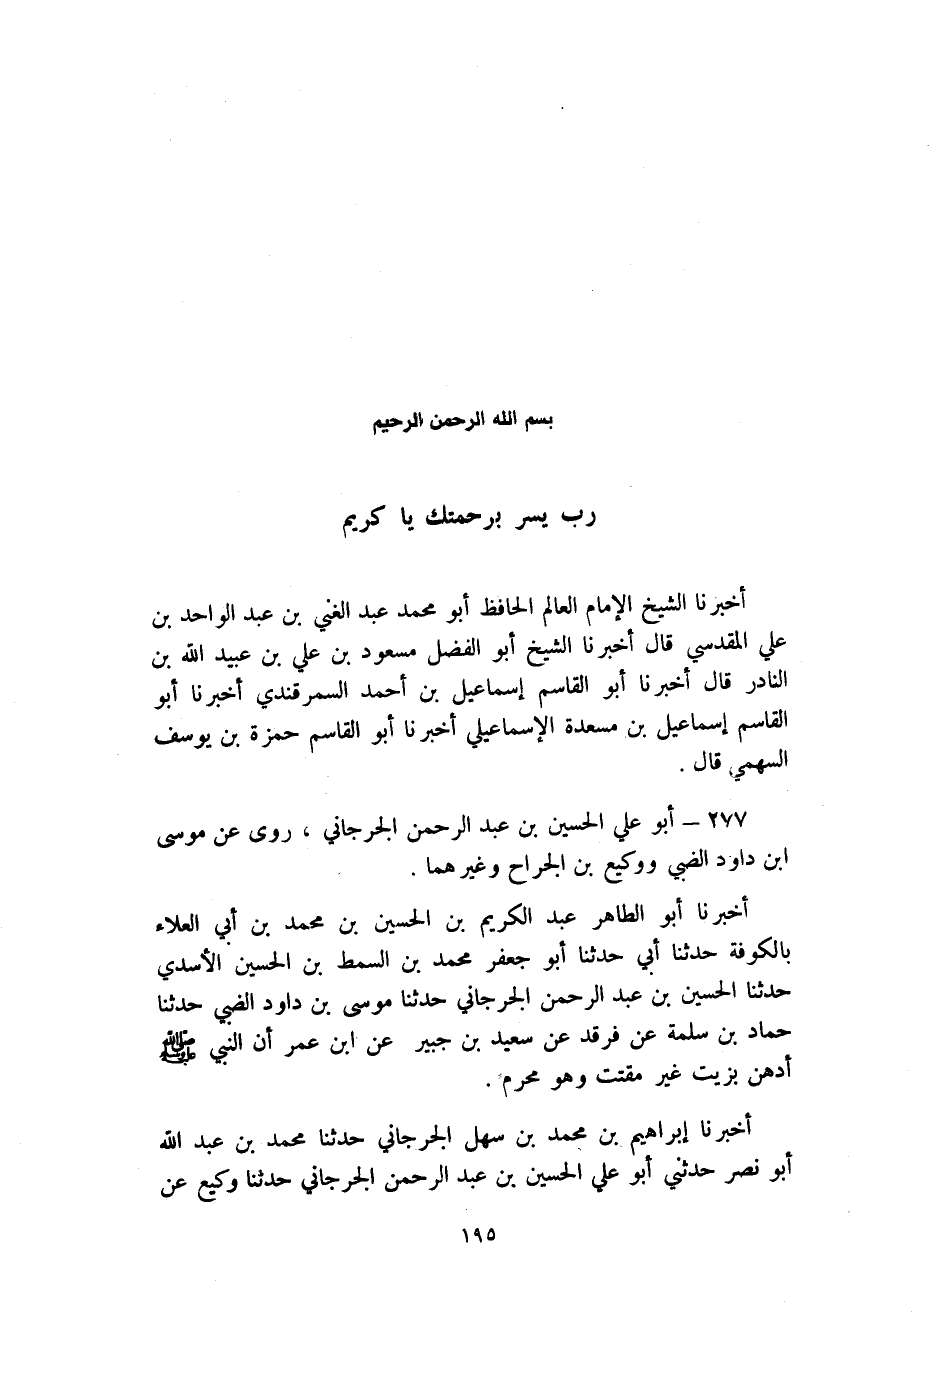 بسم الله الرحمن الرحيم
رب يسر برحمتك يا كريم
أخبرنا الشيخ الإمام العالم الحافظ أبو محمد عبد الغني بن عبد الواحد بن
علي المقدسي قال أخبرنا الشيخ أبو الفضل مسعود بن علي بن عبيد الله بن
النادر قال أخبرنا أبو القاسم إسماعيل بن أحمد السمرقندي أخبرنا أبو
القاسم إسماعيل بن مسعدة الإسماعيلي أخبرنا أبو القاسم حمزة بن يوسف
السهمي قال .
٢٧٧ – أبو علي الحسين بن عبد الرحمن الجرجاني ، روى عن موسى
ابن داود الضبي ووكيع بن الجراح وغيرهما .
أخبرنا أبو الطاهر عبد الكريم بن الحسين بن محمد بن أبي العلاء
بالكوفة حدثنا أبي حدثنا أبو جعفر محمد بن السمط بن الحسين الأسدي
حدثنا الحسين بن عبد الرحمن الجرجاني حدثنا موسى بن داود الضبي حدثنا
حماد بن سلمة عن فرقد عن سعيد بن جبير عن ابن عمر أن النبي ﷺ
أدهن بزيت غير مقتت وهو محرم .
أخبرنا إبراهيم بن محمد بن سهل الجرجاني حدثنا محمد بن عبد الله
أبو نصر حدثني أبو علي الحسين بن عبد الرحمن الجرجاني حدثنا وكيع عن
١٩٥